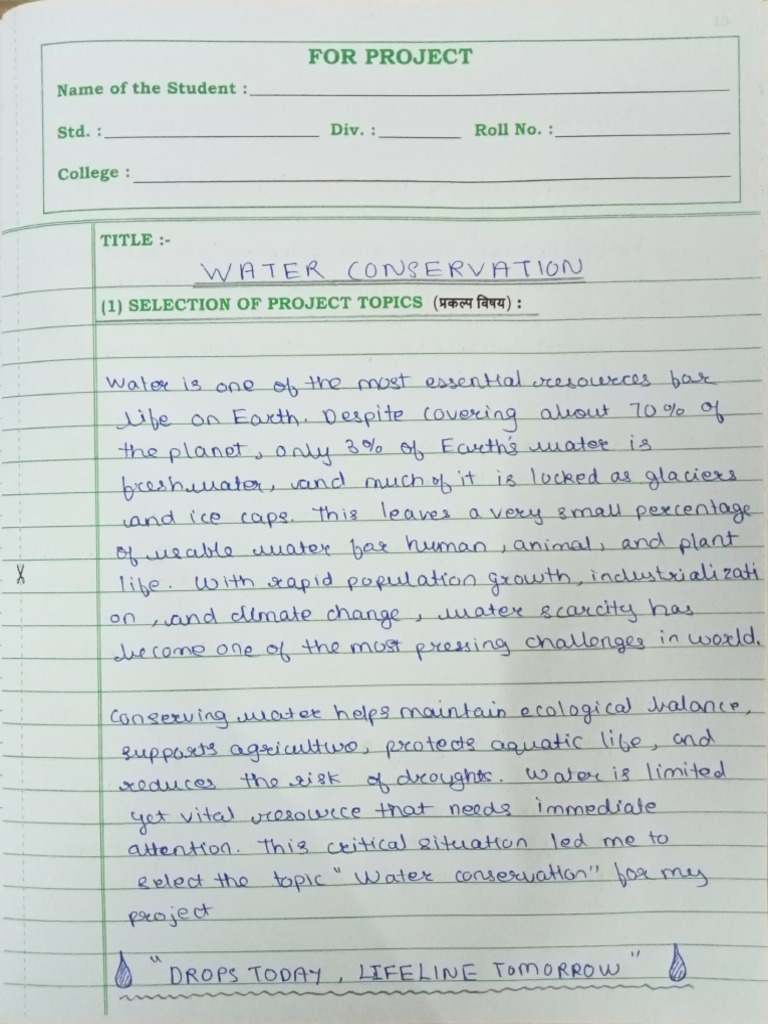 13
FOR PROJECT
Name of the Student :
Std. : Div. : Roll No. :
College :
TITLE :-
WATER CONSERVATION
(1) SELECTION OF PROJECT TOPICS (प्रकल्प विषय) :
Water is one of the most essential resources for
life on Earth. Despite covering about 70% of
the planet, only 3% of Earth's water is
freshwater, and much of it is locked as glaciers
and ice caps. This leaves a very small percentage
of usable water for human, animal, and plant
life. With rapid population growth, industrializati
on, and climate change, water scarcity has
become one of the most pressing challenges in world.
Conserving water helps maintain ecological balance,
supports agriculture, protects aquatic life, and
reduces the risk of droughts. Water is limited
yet vital resource that needs immediate
attention. This critical situation led me to
select the topic "Water conservation" for my
project
"DROPS TODAY, LIFELINE TOMORROW"